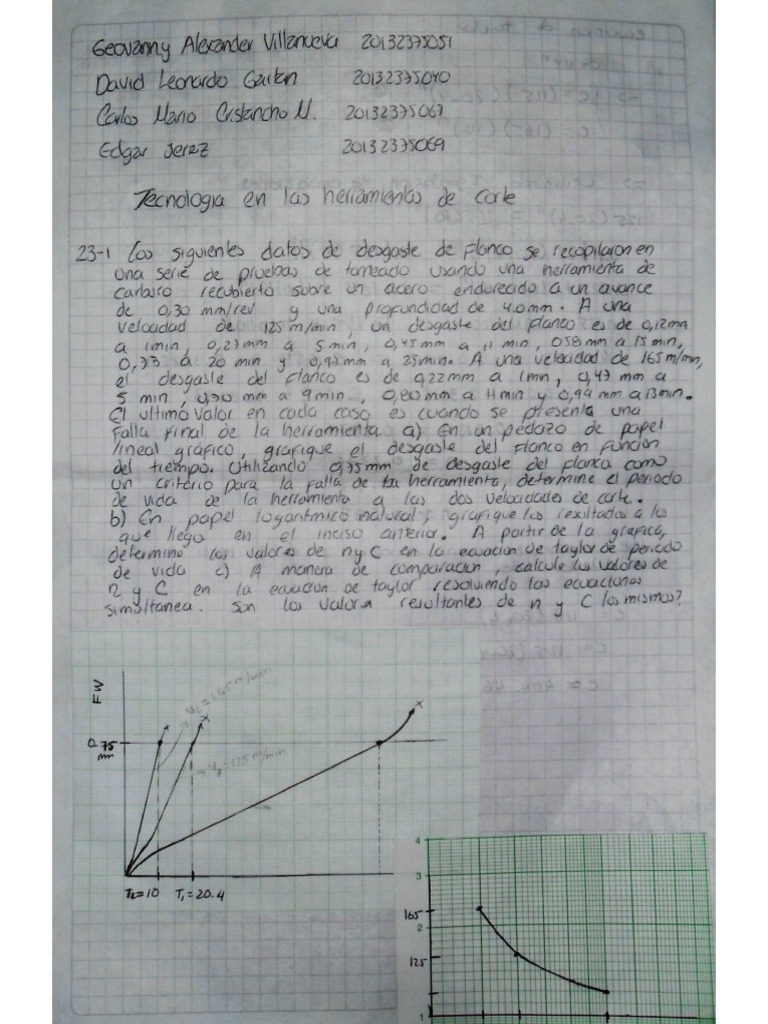 Geovanny Alexander Villanueva 20132375051
David Leonardo Gaitan 20132375040
Carlos Mario Cristancho N. 20132375067
Edgar Jerez 20132375069
Tecnologia en las herramientas de corte
23-1 Los siguientes datos de desgaste de flanco se recopilaron en
una serie de pruebas de torneado usando una herramienta de
carburo recubierto sobre un acero endurecido a un avance
de 0,30 mm/rev y una profundidad de 4.0mm. A una
velocidad de 125 m/min, un desgaste del flanco es de 0,12mm
a 1min, 0,27mm a 5min, 0,45mm a 11 min, 0.58mm a 15 min,
0,73 a 20 min y 0,97mm a 25min. A una velocidad de 165 m/min,
el desgaste del flanco es de 0,22mm a 1min, 0,47 mm a
5 min, 0,70 mm a 9min, 0,80 mm a 11min y 0,99 mm a 13min.
El ultimo valor en cada caso es cuando se presenta una
falla final de la herramienta. a) En un pedazo de papel
lineal gráfico, grafique el desgaste del flanco en función
del tiempo. Utilizando 0,75mm de desgaste del flanco como
un criterio para la falla de la herramienta, determine el periodo
de vida de la herramienta a las dos velocidades de corte.
b) En papel logaritmico natural, grafique los resultados a los
que llego en el inciso anterior. A partir de la grafica,
determine los valores de n y C en la ecuacion de taylor de periodo
de vida c) A manera de comparacion, calcule los valores de
n y C en la ecuacion de taylor resolviendo las ecuaciones
simultanea. Son los valores resultantes de n y C los mismos?
FW
0.75
mm
T2=10 T1=20.4
4
3
165
2
125
1